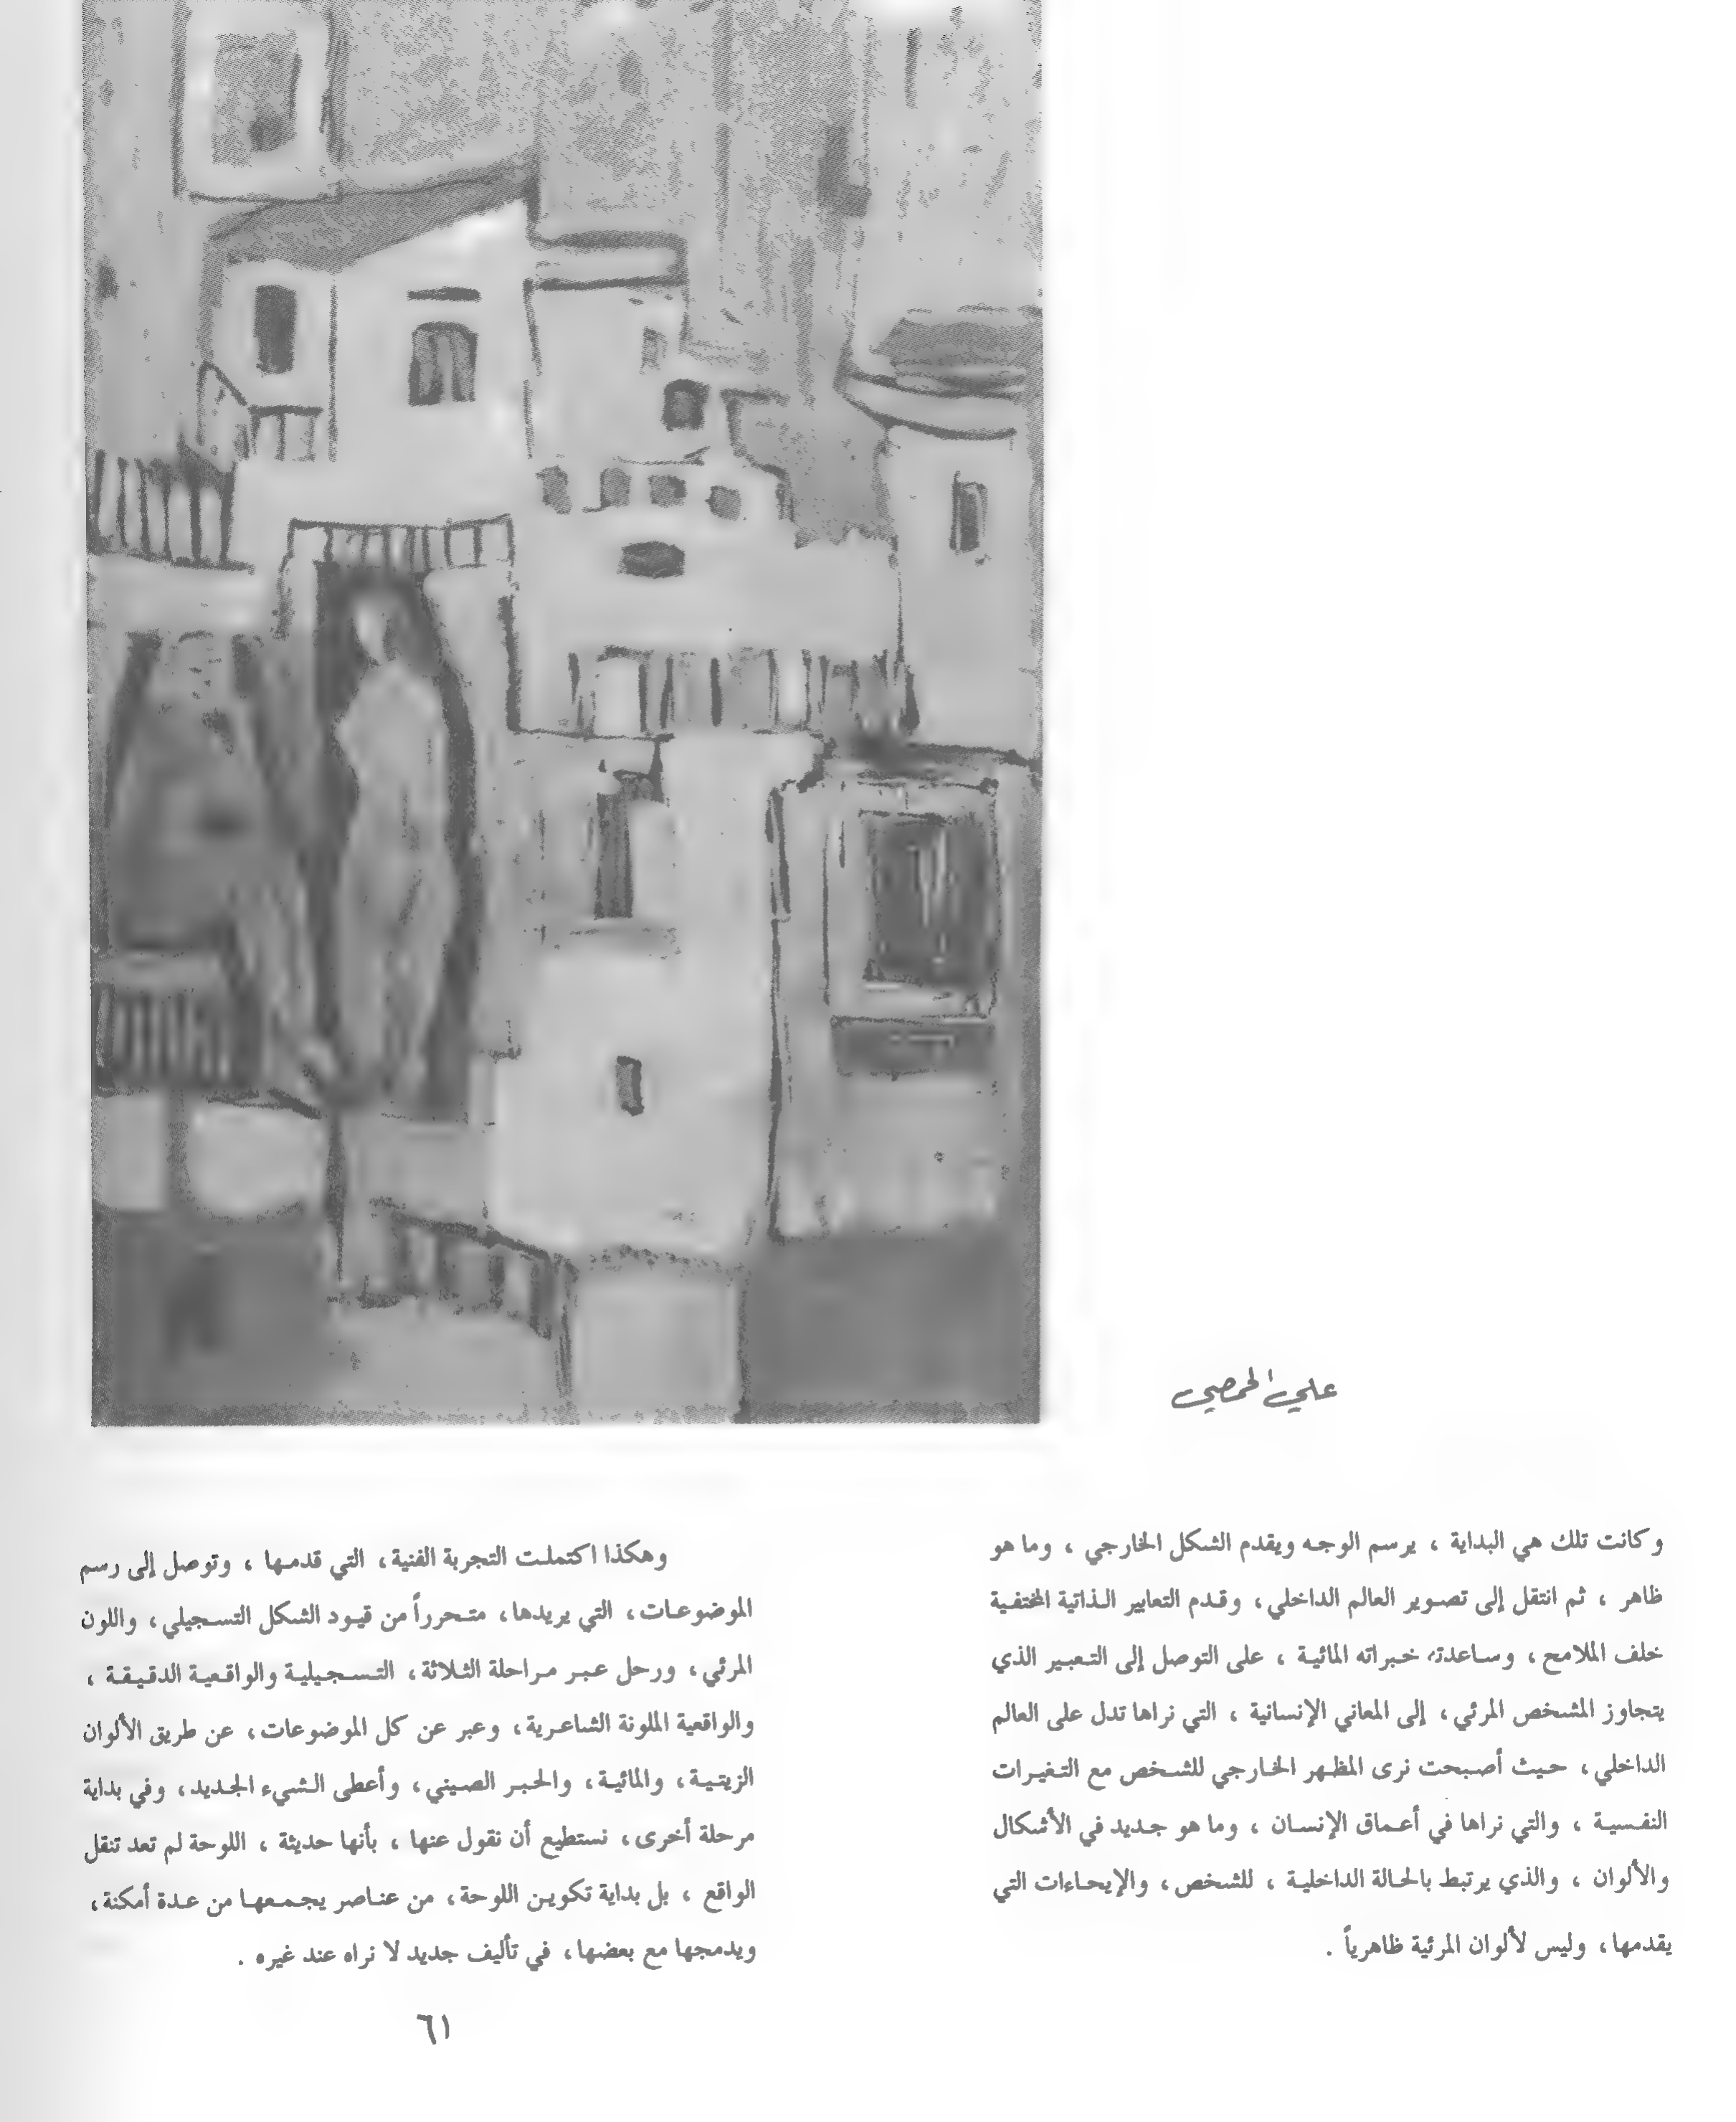 علي الحمصي
وكانت تلك هي البداية ، يرسم الوجه ويقدم الشكل الخارجي ، وما هو
ظاهر ، ثم انتقل إلى تصوير العالم الداخلي ، وقدم التعابير الذاتية المختفية
خلف الملامح ، وساعدته خبراته المائية ، على التوصل إلى التعبير الذي
يتجاوز المشخص المرئي ، إلى المعاني الإنسانية ، التي نراها تدل على العالم
الداخلي ، حيث أصبحت نرى المظهر الخارجي للشخص مع التغيرات
النفسية ، والتي نراها في أعماق الإنسان ، وما هو جديد في الأشكال
والألوان ، والذي يرتبط بالحالة الداخلية ، للشخص ، والإيحاءات التي
يقدمها ، وليس لألوان المرئية ظاهرياً .
وهكذا اكتملت التجربة الفنية ، التي قدمها ، وتوصل إلى رسم
الموضوعات ، التي يريدها ، متحرراً من قيود الشكل التسجيلي ، واللون
المرئي ، ورحل عبر مراحلة الثلاثة ، التسجيلية والواقعية الدقيقة ،
والواقعية الملونة الشاعرية ، وعبر عن كل الموضوعات ، عن طريق الألوان
الزيتية ، والمائية ، والحبر الصيني ، وأعطى الشيء الجديد ، وفي بداية
مرحلة أخرى ، نستطيع أن نقول عنها ، بأنها حديثة ، اللوحة لم تعد تنقل
الواقع ، بل بداية تكوين اللوحة ، من عناصر يجمعها من عدة أمكنة ،
ويدمجها مع بعضها ، في تأليف جديد لا نراه عند غيره .
٦١